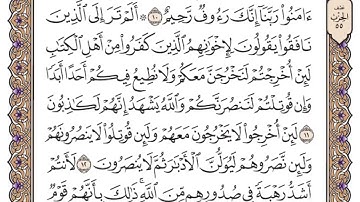 ءَامَنُوا۟ رَبَّنَآ إِنَّكَ رَءُوفٌ رَّحِيمٌ ١٠ ۞ أَلَمْ تَرَ إِلَى ٱلَّذِينَ
نَافَقُوا۟ يَقُولُونَ لِإِخْوَٰنِهِمُ ٱلَّذِينَ كَفَرُوا۟ مِنْ أَهْلِ ٱلْكِتَٰبِ
لَئِنْ أُخْرِجْتُمْ لَنَخْرُجَنَّ مَعَكُمْ وَلَا نُطِيعُ فِيكُمْ أَحَدًا أَبَدًا
وَإِن قُوتِلْتُمْ لَنَنصُرَنَّكُمْ وَٱللَّهُ يَشْهَدُ إِنَّهُمْ لَكَٰذِبُونَ
١١ لَئِنْ أُخْرِجُوا۟ لَا يَخْرُجُونَ مَعَهُمْ وَلَئِن قُوتِلُوا۟ لَا يَنصُرُونَهُمْ
وَلَئِن نَّصَرُوهُمْ لَيُوَلُّنَّ ٱلْأَدْبَٰرَ ثُمَّ لَا يُنصَرُونَ ١٢ لَأَنتُمْ
أَشَدُّ رَهْبَةً فِى صُدُورِهِم مِّنَ ٱللَّهِ ۚ ذَٰلِكَ بِأَنَّهُمْ قَوْمٌ
نصف
الحزب
٥٥